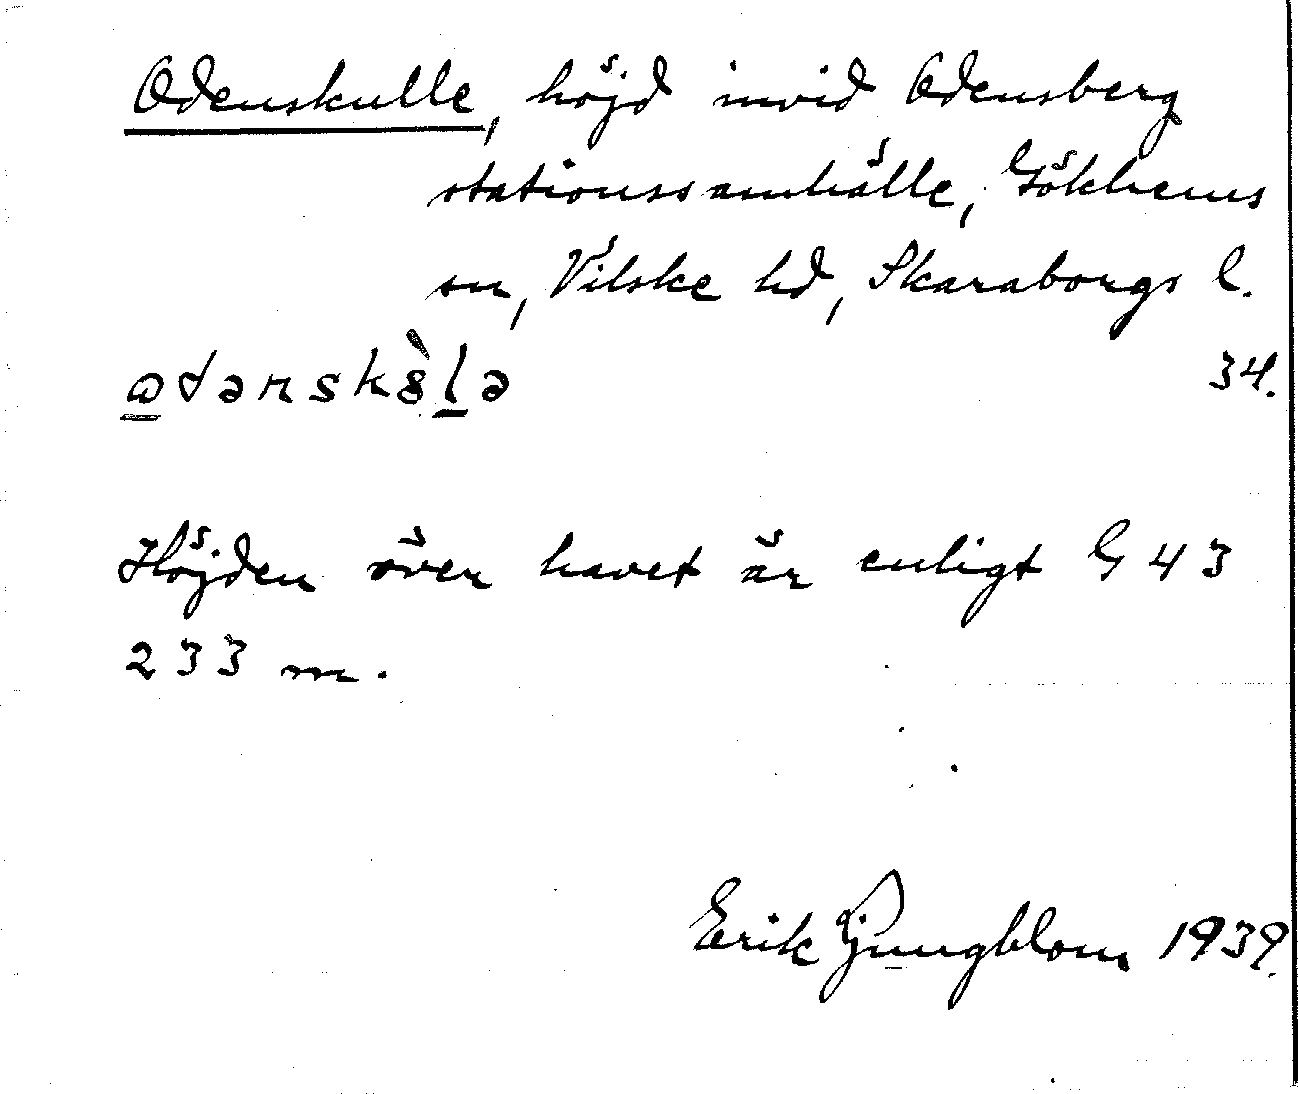 Odenskulle, höjd invid Odensberg
stationssamhälle, Gökhems
sn, Vilske hd, Skaraborgs l.
34.
Höjden över havet är enligt G 43
233 m.
Erik Ljungblom 1939.